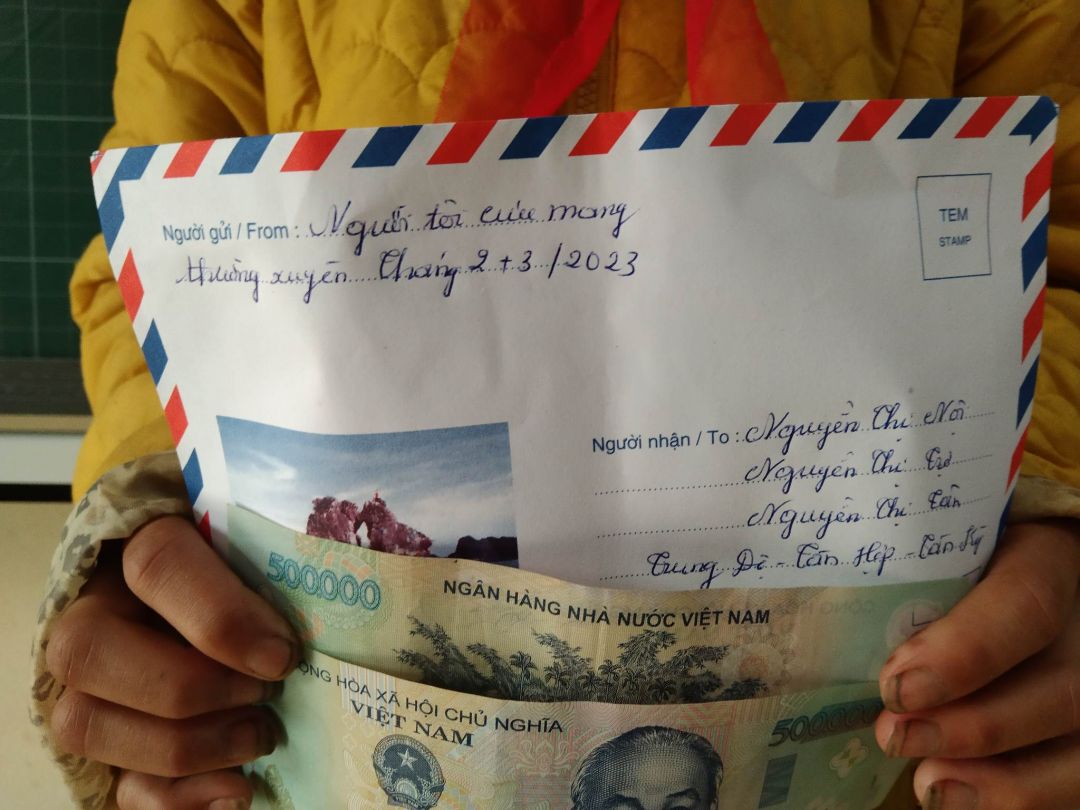 Người gửi / From : Người tôi cưu mang
thường xuyên Tháng 2 + 3 / 2023
TEM
STAMP
Người nhận / To : Nguyễn Thị Nội
Nguyễn Thị Trợ
Nguyễn Thị Tân
Trung Độ - Tân Hợp - Tân Kỳ
500000
NGÂN HÀNG NHÀ NƯỚC VIỆT NAM
CỘNG HÒA XÃ HỘI CHỦ NGHĨA
VIỆT NAM
500000